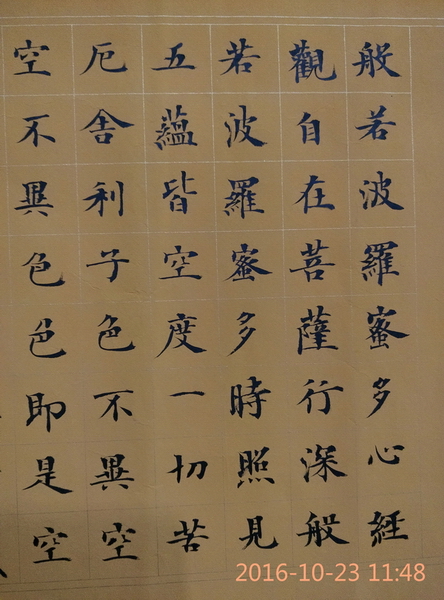 般若波羅蜜多心經
觀自在菩薩行深般
若波羅蜜多時照見
五蘊皆空度一切苦
厄舍利子色不異空
空不異色色即是空
2016-10-23 11:48